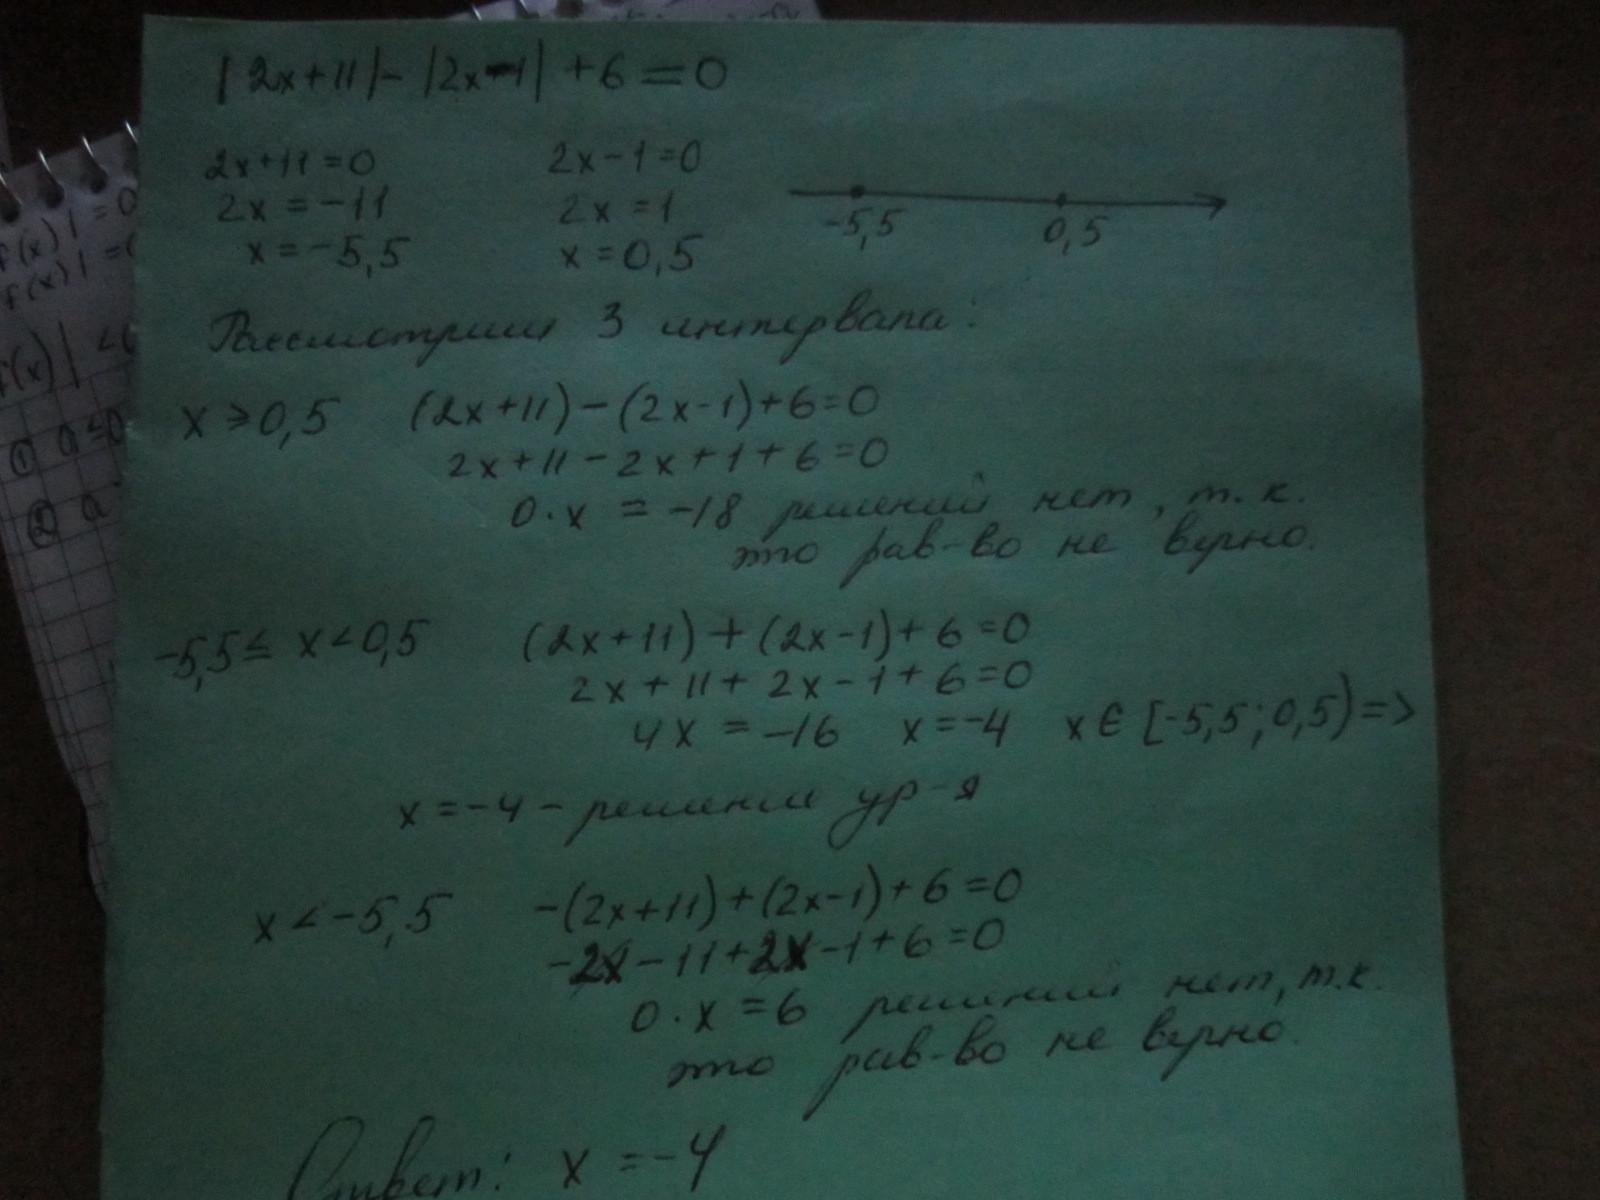 |2x+11|-|2x-1|+6=0
2x+11=0 2x-1=0
2x=-11 2x=1
x=-5,5 x=0,5
-5,5 0,5
Рассмотрим 3 интервала:
x≥0,5 (2x+11)-(2x-1)+6=0
2x+11-2x+1+6=0
0·x=-18 решений нет, т.к.
это рав-во не верно.
-5,5≤x<0,5 (2x+11)+(2x-1)+6=0
2x+11+2x-1+6=0
4x=-16 x=-4 x∈[-5,5;0,5)=>
x=-4 - решение ур-я
x<-5,5 -(2x+11)+(2x-1)+6=0
-2x-11+2x-1+6=0
0·x=6 решений нет, т.к.
это рав-во не верно.
Ответ: x=-4
f(x)|=0
f(x)|=
f(x)|<0
① a≤0
② a